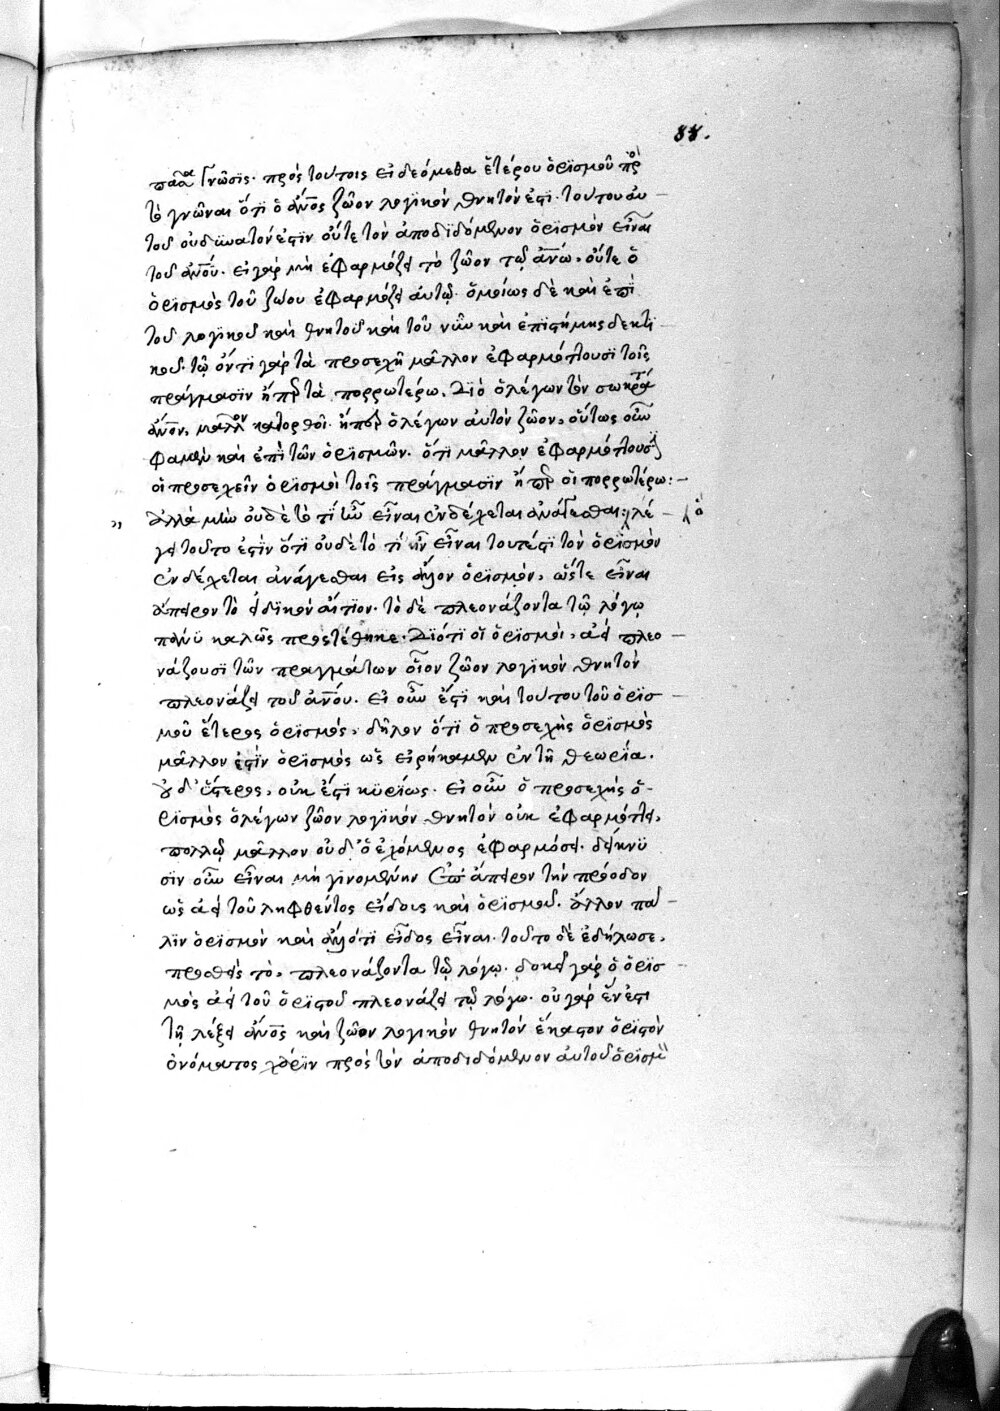 88.
πᾶσα γνῶσις· πρὸς τούτοις εἰ δεόμεθα ἑτέρου ὁρισμοῦ πρὸς
τὸ γνῶναι ὅτι ὁ ἄνος ζῶον λογικὸν θνητόν ἐστι· τούτου αὐ-
τοῦ οὐ δυνατόν ἐστιν οὔτε τὸν ἀποδιδόμενον ὁρισμὸν εἶναι
τοῦ ἀνου· εἰ γὰρ μὴ ἐφαρμόζει τὸ ζῶον τῷ ἀνω, οὔτε ὁ
ὁρισμὸς τοῦ ζώου ἐφαρμόζει αὐτῷ· ὁμοίως δὲ καὶ ἐπὶ
τοῦ λογικοῦ καὶ θνητοῦ καὶ τοῦ νοῦ καὶ ἐπιστήμης δεκτι-
κοῦ· τῷ ὄντι γὰρ τὰ προσεχῆ μᾶλλον ἐφαρμόττουσι τοῖς
πράγμασιν ἤπερ τὰ πορρωτέρω· διὸ ὁ λέγων τὸν σωκράτη
ἄνον, μᾶλλον κατορθοῖ· ἤπερ ὁ λέγων αὐτὸν ζῶον, οὕτως οὖν
φαμὲν καὶ ἐπὶ τῶν ὁρισμῶν· ὅτι μᾶλλον ἐφαρμόττουσι
οἱ προσεχεῖς ὁρισμοὶ τοῖς πράγμασιν ἤπερ οἱ πορρωτέρω:-
,, ἀλλὰ μὴν οὐδὲ τὸ τί ἦν εἶναι ἐνδέχεται ἀνάγεσθαι: ὃ λέ-
γει τοῦτο ἐστὶν ὅτι οὐδὲ τὸ τί ἦν εἶναι τουτέστι τὸν ὁρισμὸν
ἐνδέχεται ἀνάγεσθαι εἰς ἄλλον ὁρισμὸν, ὥστε εἶναι
ἄπειρον τὸ εἰδικὸν αἴτιον· τὸ δὲ πλεονάζοντα τῷ λόγῳ
πάνυ καλῶς προστέθηκε· διότι οἱ ὁρισμοὶ, ἀεὶ πλεο-
νάζουσι τῶν πραγμάτων οἷον ζῶον λογικὸν θνητὸν
πλεονάζει τοῦ ἀνου· εἰ οὖν ἔστι καὶ τούτου τοῦ ὁρισ-
μοῦ ἕτερος ὁρισμὸς, δῆλον ὅτι ὁ προσεχὴς ὁρισμὸς
μᾶλλον ἐστὶν ὁρισμὸς ὡς εἰρήκαμεν ἐν τῇ θεωρία.
ὁ δ' ὕστερος, οὐκ ἔστι κυρίως· εἰ οὖν ὁ προσεχὴς ὁ-
ρισμὸς ὁ λέγων ζῶον λογικὸν θνητὸν οὐκ ἐφαρμόττει,
πολλῷ μᾶλλον οὐδ' ὁ ἐχόμενος ἐφαρμόσει· δείκνυ
σιν οὖν εἶναι μὴ γινομένην ἐπ' ἄπειρον τὴν πρόοδον
ὡς ἀεὶ τοῦ ληφθέντος εἴδους καὶ ὁρισμοῦ· ἄλλον πά-
λιν ὁρισμὸν καὶ ἄλλό τι εἶδος εἶναι· τοῦτο δὲ ἐδήλωσε,
προσθεὶς τὸ, πλεονάζοντα τῷ λόγῳ· δοκεῖ γὰρ ὁ ὁρισ-
μὸς ἀεὶ τοῦ ὁριστοῦ πλεονάζει τῷ λόγῳ· οὐ γὰρ ἕν ἐστι
τῇ λέξει ἄνος καὶ ζῶον λογικὸν θνητὸν ἕκαστον ὁριστὸν
ὀνόματος χάριν πρὸς τὸν ἀποδιδόμενον αὐτοῦ ὁρισμὸν